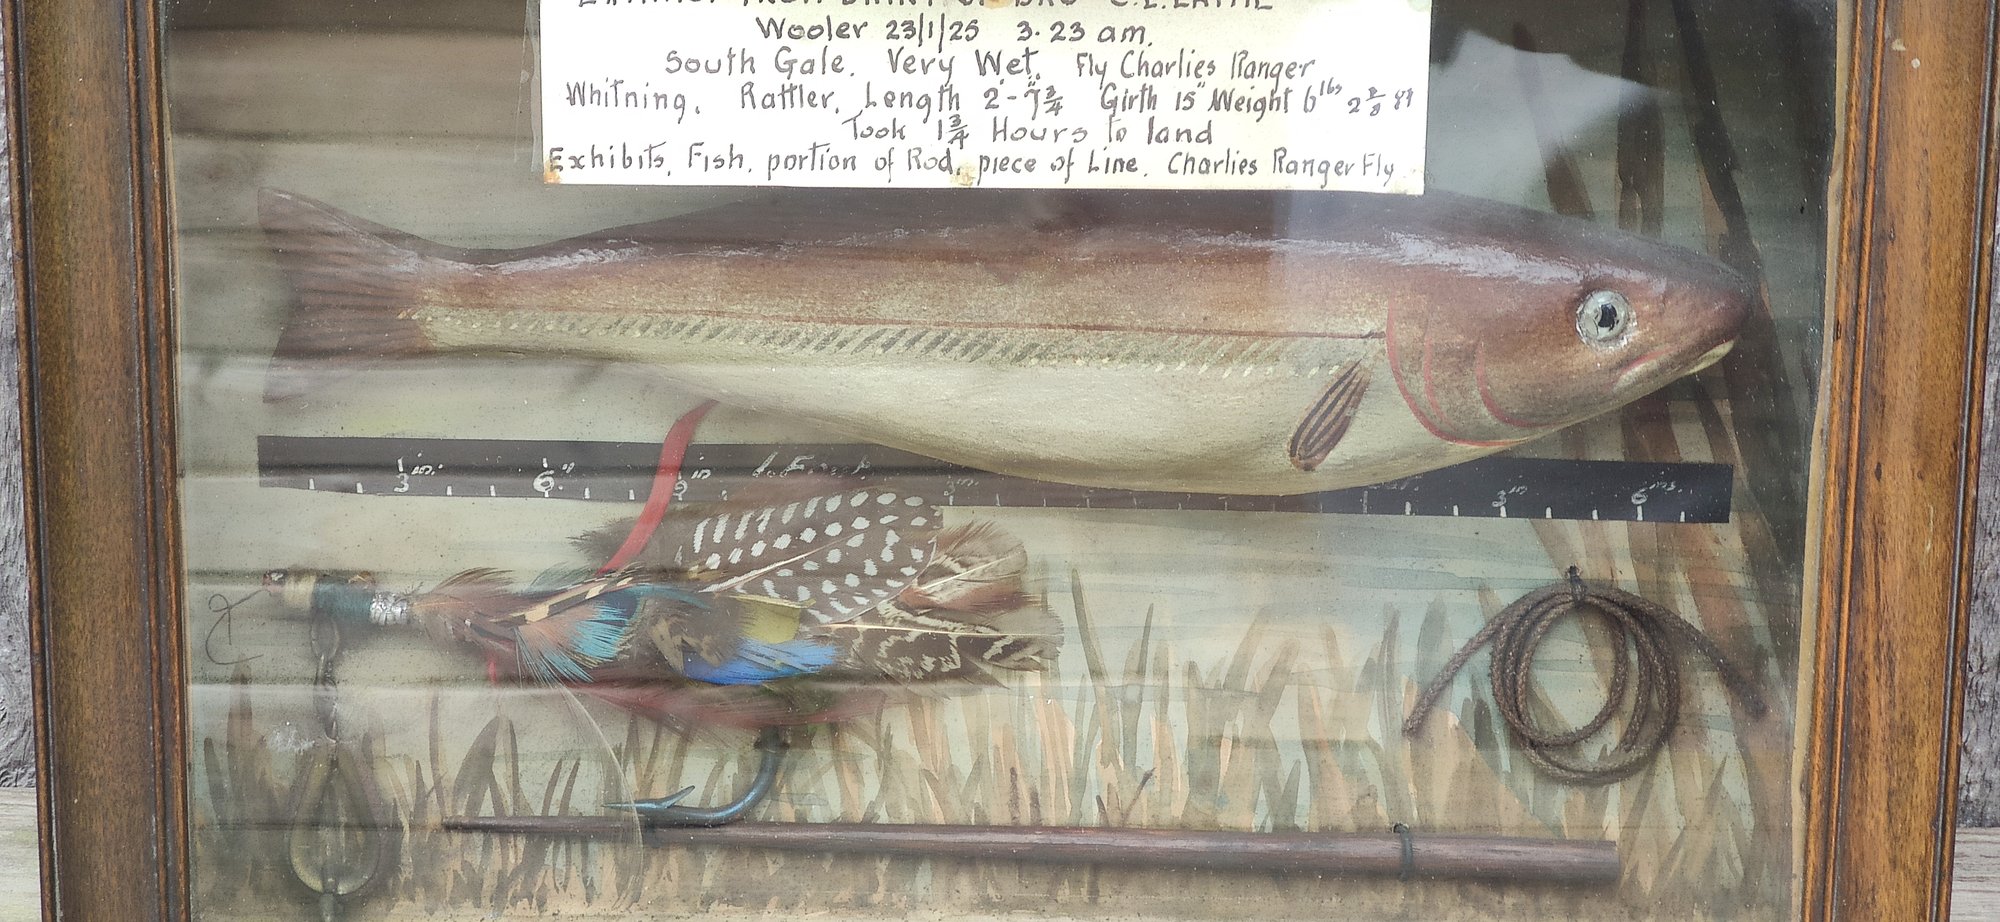 Extract from Diary of Bro C.E.
Wooler 23/1/25 3.23 am.
South Gale. Very Wet. Fly Charlies Ranger
Whitning. Rattler. Length 2'-7¾" Girth 15" Weight 6 lbs 2⅜
Took 1¾ Hours to land
Exhibits, Fish, portion of Rod, piece of Line. Charlies Ranger Fly
3 in. 6" 9 in 1. Foot. 3 in 3 in 6 ins.